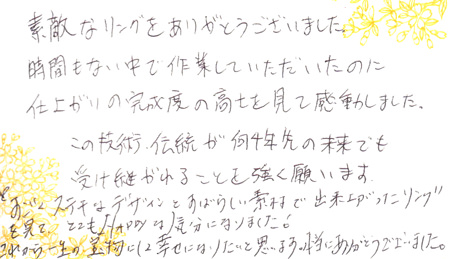 素敵なリングをありがとうございました。
時間もない中で作業していただいたのに
仕上がりの完成度の高さを見て感動しました。
この技術、伝統が何千年先の未来でも
受け継がれることを強く願います。
ステキなデザインとすばらしい素材で出来上がったリング
を見て、とてもHAPPYな気分になりました!
これから一生の宝物にして幸せになりたいと思います。本当にありがとうございました。